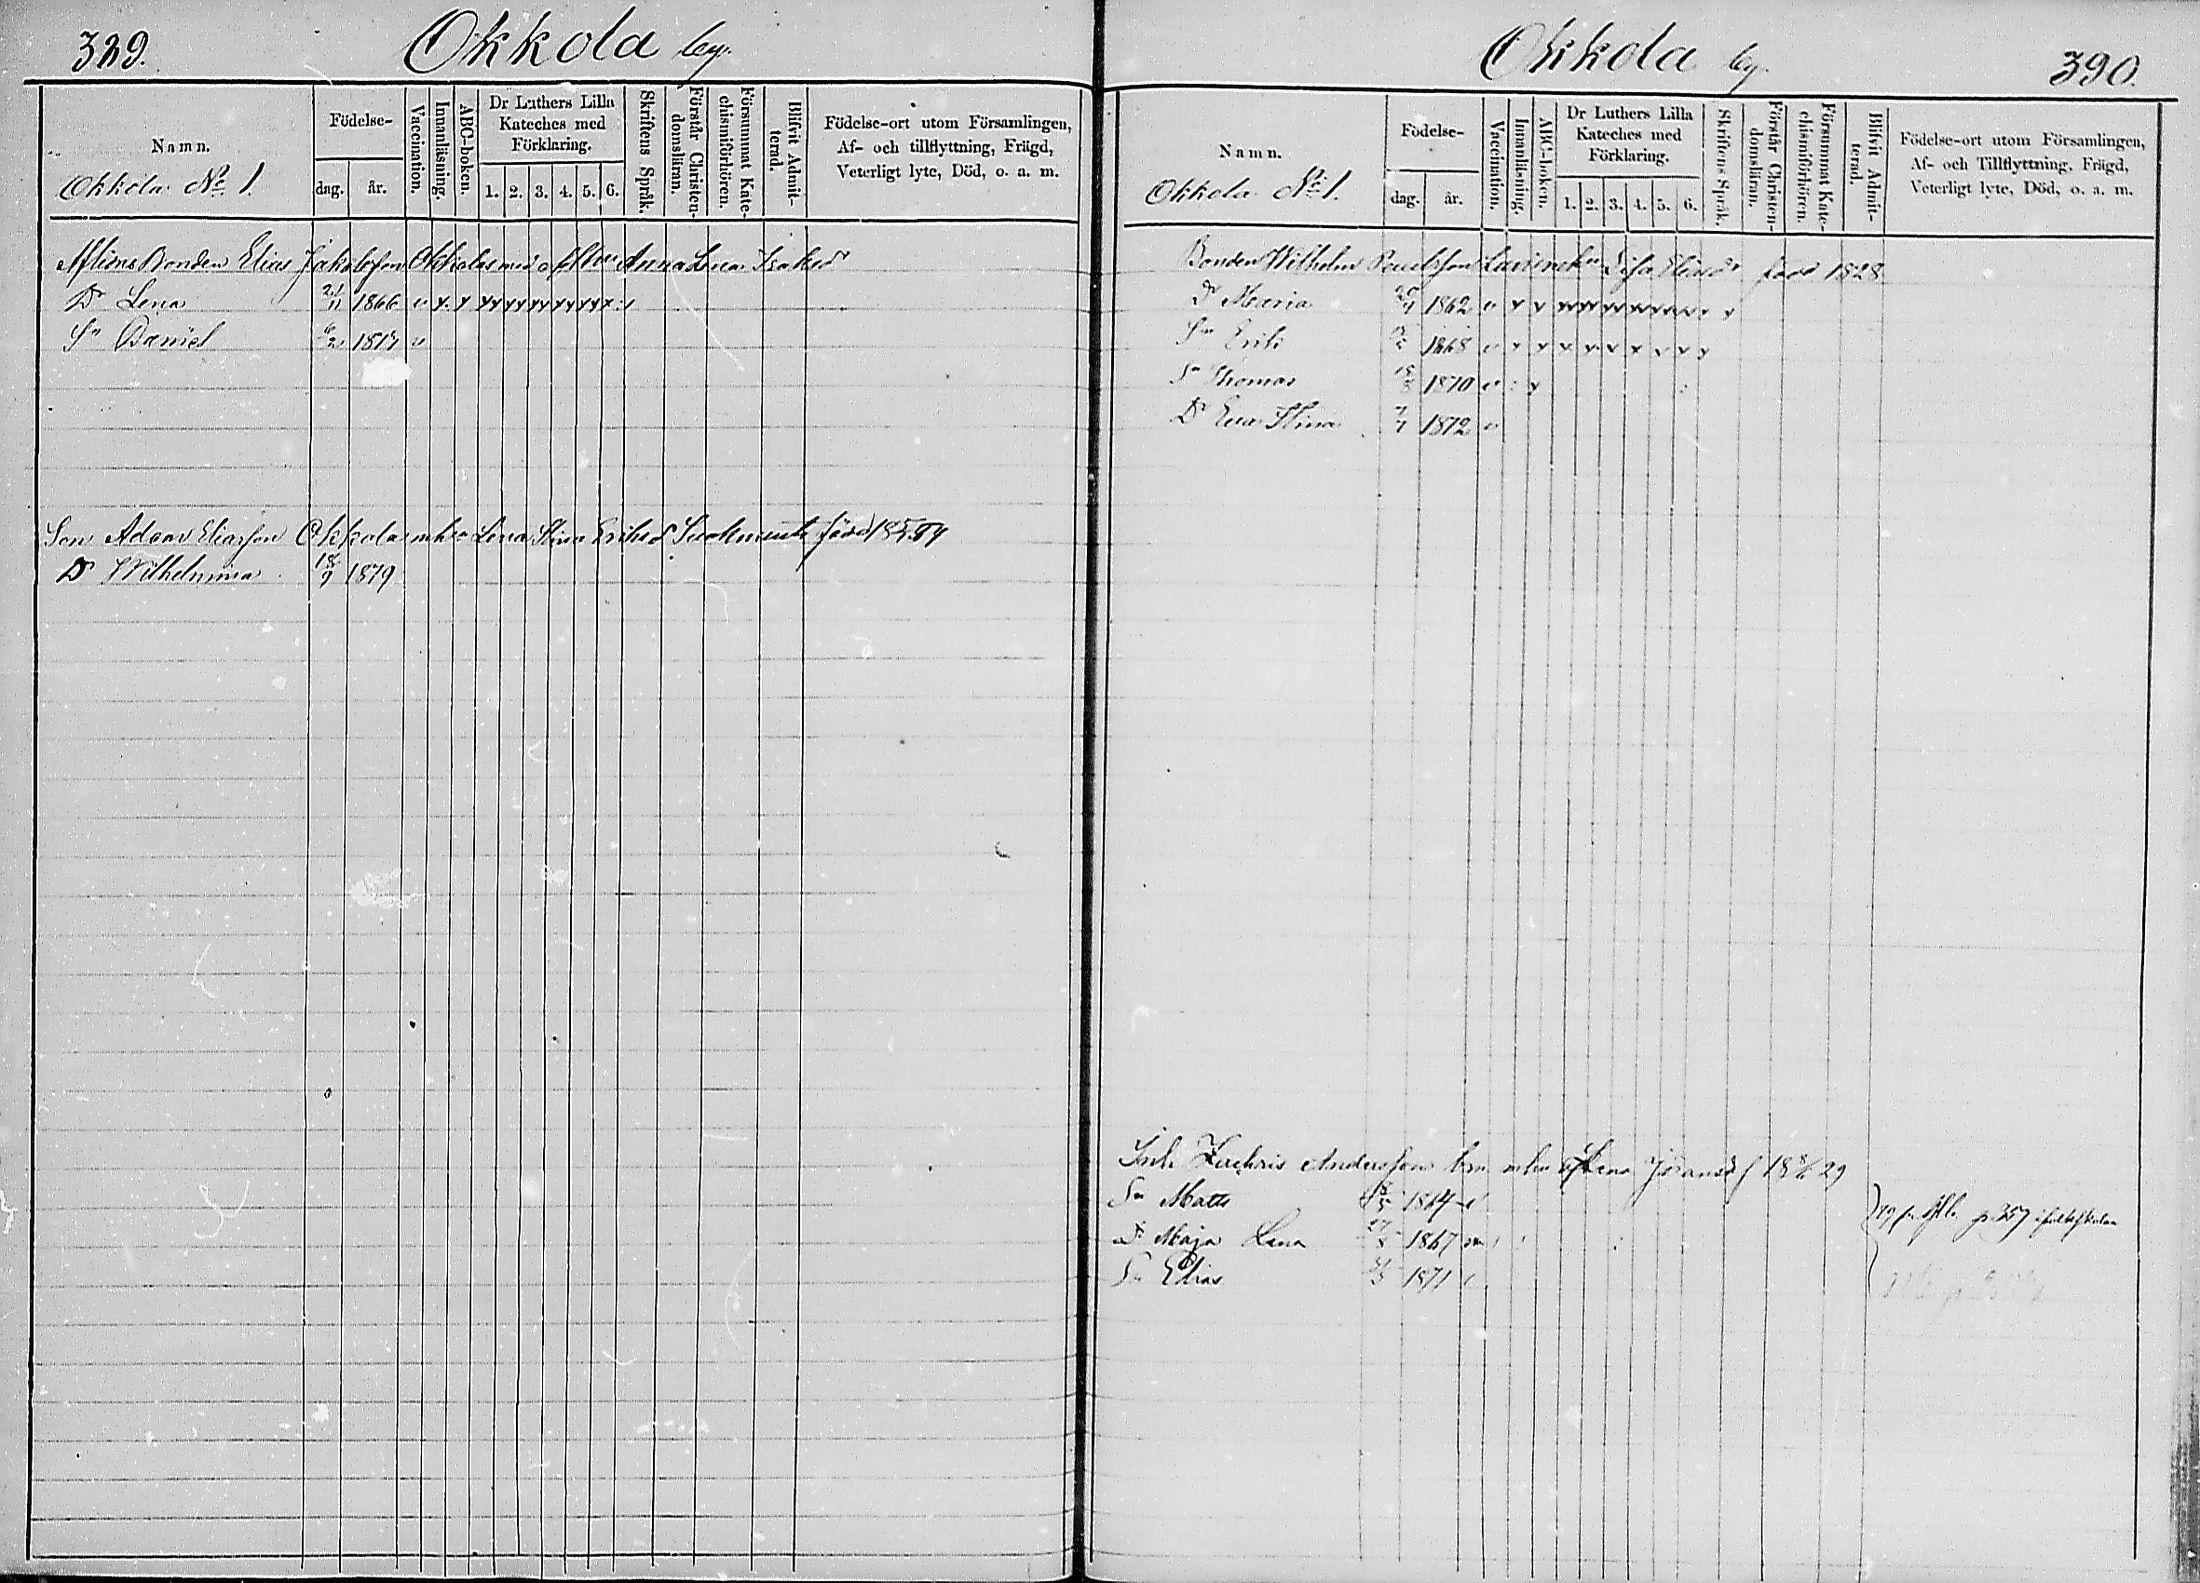 389.
Okkola by.
Namn.
Okkola No 1.
Födelse-
dag.
år.
Vaccination.
Innanläsning.
ABC-boken.
Dr Luthers Lilla
Kateches med
Förklaring.
1. 2. 3. 4. 5. 6.
Skriftens Språk.
Förstår Christen-
domsläran.
Försummat Kate-
chismiförhören.
Blifvit Admit-
terad.
Födelse-ort utom Församlingen,
Af- och tillflyttning, Frägd,
Veterligt lyte, Död, o. a. m.
Aflidne Bonden Elias Jakobsson Okkolas med Anna Lena Isaksdr
Dr Lena 21/11 1866 v x x xx xx xx xx xx x
Sn Daniel 6/2 v
Son Adam Eliasson Okkola Lena Stina Eriksd född
Dr Wilhelmina 18/9 1879
Okkola by.
390.
Namn.
Okkola No 1.
Födelse-
dag.
år.
Vaccination.
Innanläsning.
ABC-boken.
Dr Luthers Lilla
Kateches med
Förklaring.
1. 2. 3. 4. 5. 6.
Skriftens Språk.
Förstår Christen-
domsläran.
Försummat Kate-
chismiförhören.
Blifvit Admit-
terad.
Födelse-ort utom Församlingen,
Af- och Tillflyttning, Frägd,
Veterligt lyte, Död, o. a. m.
Bonden Wilhelm Paulsson Lisa Eliasdr född 1828.
Dr Maria 1862 v x x
Sn Erik 1868 v x x x x x x x x
Sn Thomas 1870 v x
Dr Eva Stina 1872 v
Inh Zachris Andersson Lena Göransd
Sn Matts 1864
Dr Maja Lena 1867
Sn Elias 1871
p 357 i folkskolan